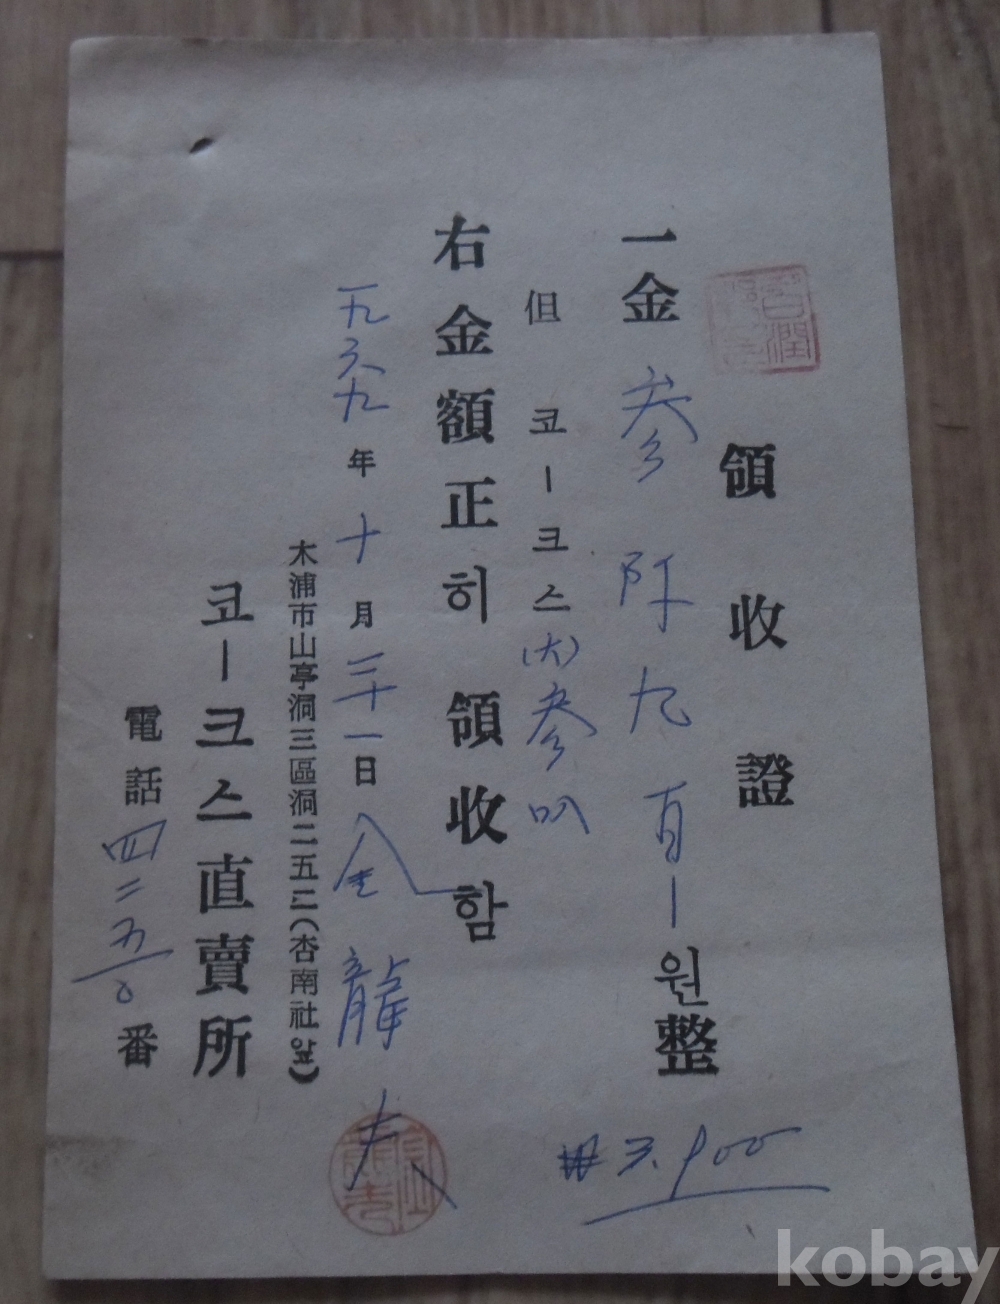 領收證
一金 參阡九百ー원整
₩3,900
但 코ー크스(大)參叺
右金額正히 領收함
一九六九年十月三十一日 金龍
木浦市山亭洞三區洞二五三(杏南社앞)
코ー크스直賣所
電話 四二五〇番
kobay